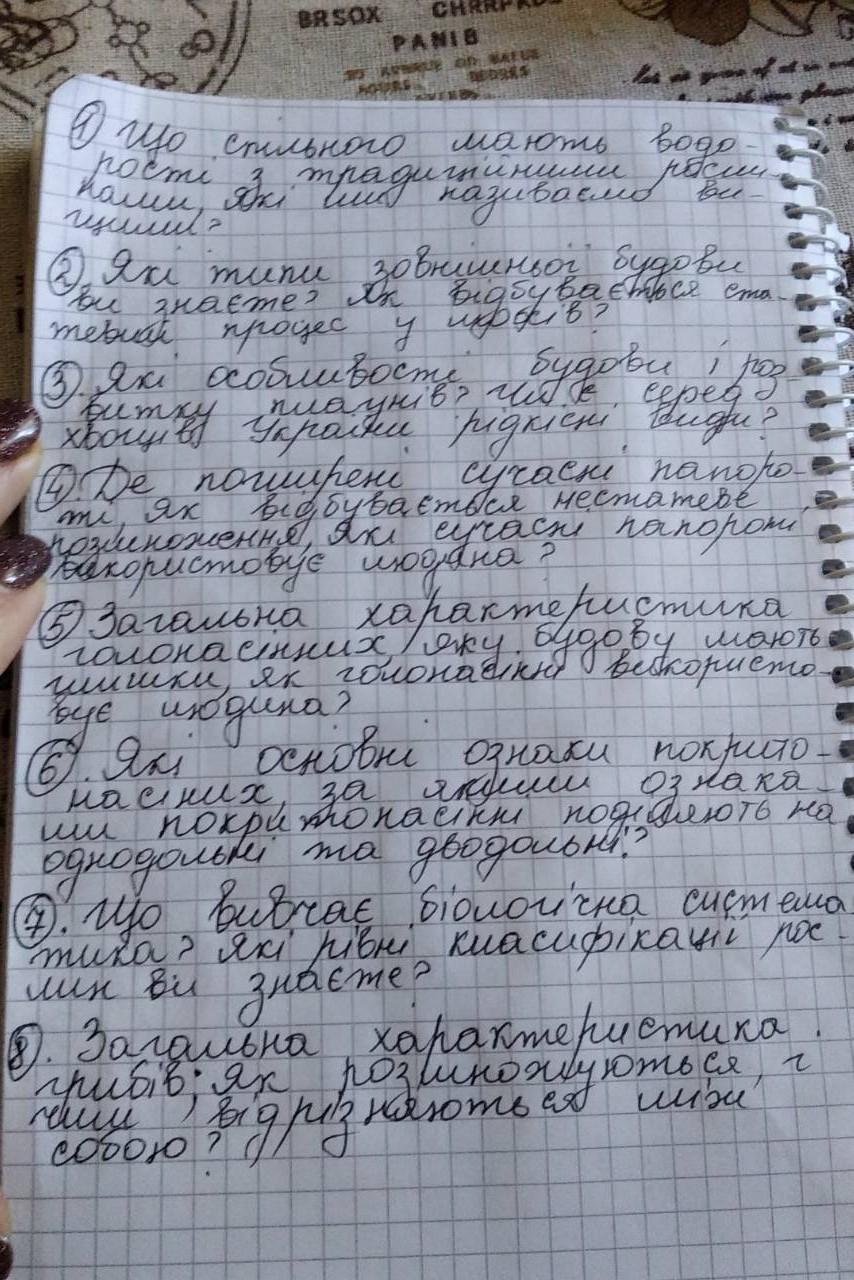 BRSOX CHRRPAD
PANIB
① Що спільного мають водо-
рості з традиційними росли-
нами, які ми називаємо ви-
щими?
② Які типи зовнішньої будови
ви знаєте? Як відбувається ста-
тевий процес у мохів?
③ Які особливості будови і роз-
витку плаунів? Чи є серед
хвощів України рідкісні види?
④ Де поширені сучасні папоро-
ті, як відбувається нестатеве
розмноження, які сучасні папороті
використовує людина?
⑤ Загальна характеристика
голонасінних, яку будову мають
шишки, як голонасінні використо-
вує людина?
⑥. Які основні ознаки покрито-
насіних, за якими ознака-
ми покритонасінні поділяють на
однодольні та дводольні?
⑦. Що вивчає біологічна система
тика? Які рівні класифікації рос-
лин ви знаєте?
⑧. Загальна характеристика
грибів; як розмножуються, і
чим відрізняються між
собою?